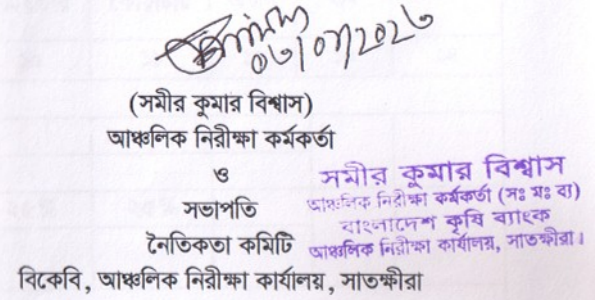 ০৩/০৭/২০২৩
(সমীর কুমার বিশ্বাস)
আঞ্চলিক নিরীক্ষা কর্মকর্তা
ও
সভাপতি
নৈতিকতা কমিটি
বিকেবি, আঞ্চলিক নিরীক্ষা কার্যালয়, সাতক্ষীরা
সমীর কুমার বিশ্বাস
আঞ্চলিক নিরীক্ষা কর্মকর্তা (সঃ মঃ ব্য)
বাংলাদেশ কৃষি ব্যাংক
আঞ্চলিক নিরীক্ষা কার্যালয়, সাতক্ষীরা।